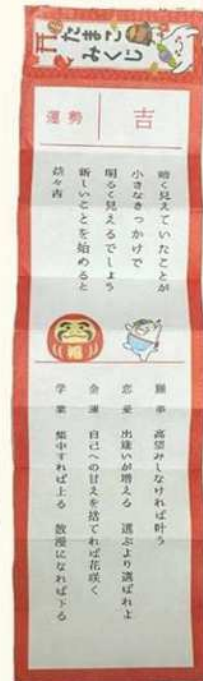 たまご
みくじ
運勢 吉
暗く見えていたことが
小さなきっかけで
明るく見えるでしょう
新しいことを始めると
益々吉
福
願事 高望みしなければ叶う
恋愛 出逢いが増える 選ぶより選ばれよ
金運 自己への甘えを捨てれば花咲く
学業 集中すれば上る 散漫になれば下る